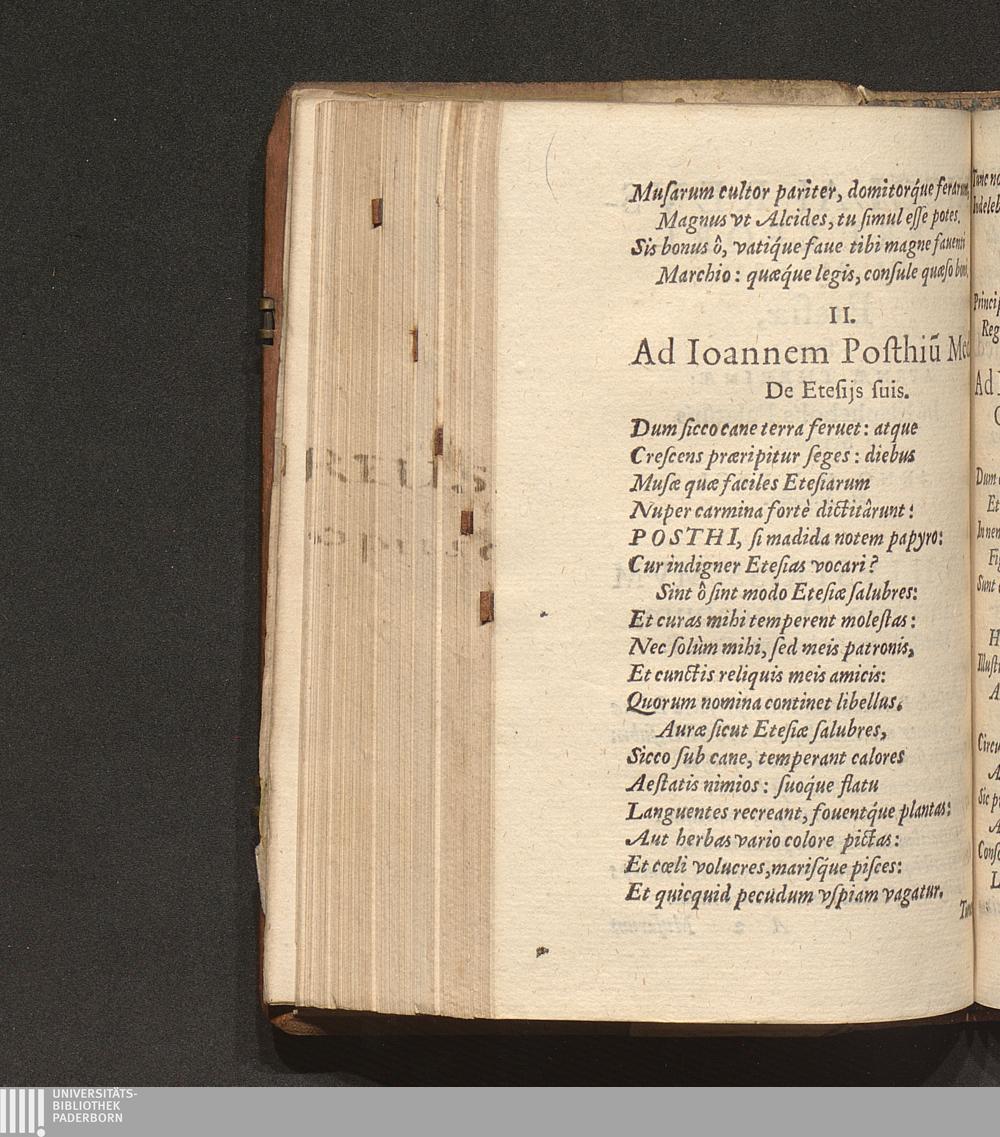 Muſarum cultor pariter, domitorq́ue ferarum,
Magnus vt Alcides, tu ſimul eſſe potes.
Sis bonus ô, vatiq́ue faue tibi magne fauenti
Marchio: quæq́ue legis, conſule quæſo boni.
II.
Ad Ioannem Poſthiũ Med
De Eteſijs ſuis.
Dum ſicco cane terra feruet: atque
Creſcens præripitur ſeges: diebus
Muſæ quæ faciles Eteſiarum
Nuper carmina fortè dictitârunt:
POSTHI, ſi madida notem papyro:
Cur indigner Eteſias vocari?
Sint ô ſint modo Eteſiæ ſalubres:
Et curas mihi temperent moleſtas:
Nec ſolùm mihi, ſed meis patronis,
Et cunctis reliquis meis amicis:
Quorum nomina continet libellus.
Auræ ſicut Eteſiæ ſalubres,
Sicco ſub cane, temperant calores
Aeſtatis nimios: ſuoq́ue flatu
Languentes recreant, fouentq́ue plantas:
Aut herbas vario colore pictas:
Et cœli volucres, mariſq́ue piſces:
Et quicquid pecudum vſpiam vagatur.
Tunc no
Indeleb
Princip
Reg
Ad
Dum
Et
In nen
Fi
Sunt
H
Illuſt
A
Circu
A
Sic p
A
Conſ
L
UNIVERSITÄTS-
BIBLIOTHEK
PADERBORN